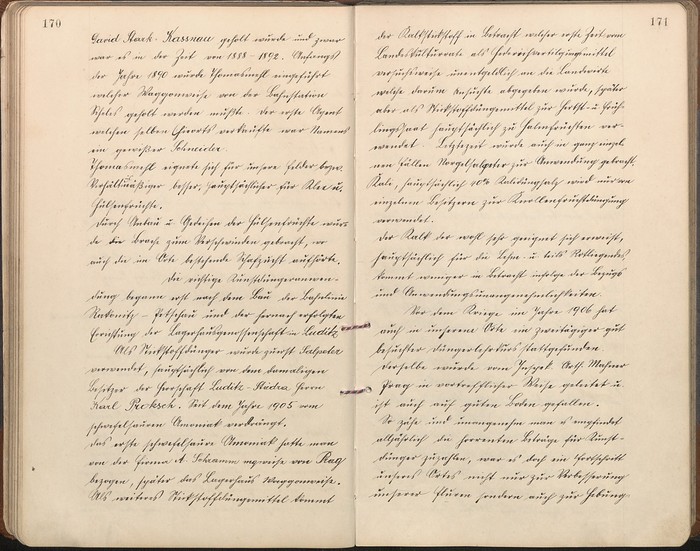 170
David Stark - Kassnau geholt wurde und zwar
war es in der Zeit von 1888 - 1892. Anfangs
der Jahre 1890 wurde Thomasmehl eingeführt
welches Waggonweise von der Bahnstation
geholt werden mußte. Der erste Agent
welcher selben hierorts verkaufte war Namens
ein gewißer Schneider.
Thomasmehl eignete sich für unsere Felder bezw.
Verhältnißmäßiger besser, hauptsächlicher für Klee u.
Hülsenfrüchte.
Durch Anbau u. Gedeihen der Hülsenfrüchte wur-
de die Brache zum Verschwinden gebracht, wo
auch die im Orte bestehende Schafzucht aufhörte.
Die richtige Kunstdüngeranwen-
dung begann erst nach dem Bau der Bahnlinie
Rakonitz - Petschau und der hernach erfolgten
Errichtung der Lagerhausgenossenschaft in Luditz.
Als Stickstoffdünger wurde zuerst Salpeter
verwendet, hauptsächlich von dem damaligen
Besitzer der Herrschaft Luditz - Stiedra Herrn
Karl Proksch. Seit dem Jahre 1905 vom
schwefelsauren Amoniak verdrängt.
Das erste schwefelsaure Amoniak hatte man
von der Firma A. Schramm aus Prag
bezogen, später das Lagerhaus Waggonweise.
Als weiteres Stickstoffdüngemittel kommt
171
der Kalkstickstoff in Betracht welcher erste Zeit vom
Landeskulturrate als Hederichvertilgungsmittel
versuchsweise unentgeldlich an die Landwirte
welche darum ansuchten abgegeben wurde, später
aber als Stickstoffdüngemittel zur Herbst- u. Früh-
lingssaat hauptsächlich zu Halmfrüchten ver-
wendet. Letztezeit wurde auch in ganz einzel-
nen Fällen Norgesalpeter zur Anwendung gebracht.
Kale, hauptsächlich 40% Kalidüngsalz wird nur von
einzelnen Besitzern zur Knollenfruchtdüngung
verwendet.
Der Kalk der wohl sehr geeignet sich erweist,
hauptsächlich für die Lehm- u. teils Rotliegendes,
kommt weniger in Betracht infolge der Bezugs
und Anwendungsunannehmlichkeiten.
Vor dem Kriege im Jahre 1906 hat
auch in unserem Orte ein zweitägiger gut
besuchter Düngerlehrkurs stattgefunden.
Derselbe wurde vom Inspek. Mahner
Prag in vortrefflicher Weise geleitet u.
ist auch auf guten Boden gefallen.
So zähe und unangenehm man es empfindet
alljährlich die horrenten Beträge für Kunst-
dünger zuzahlen, war es doch ein Fortschritt
unseres Ortes nicht nur zur Verbesserung
unserer Fluren sondern auch zur Hebung